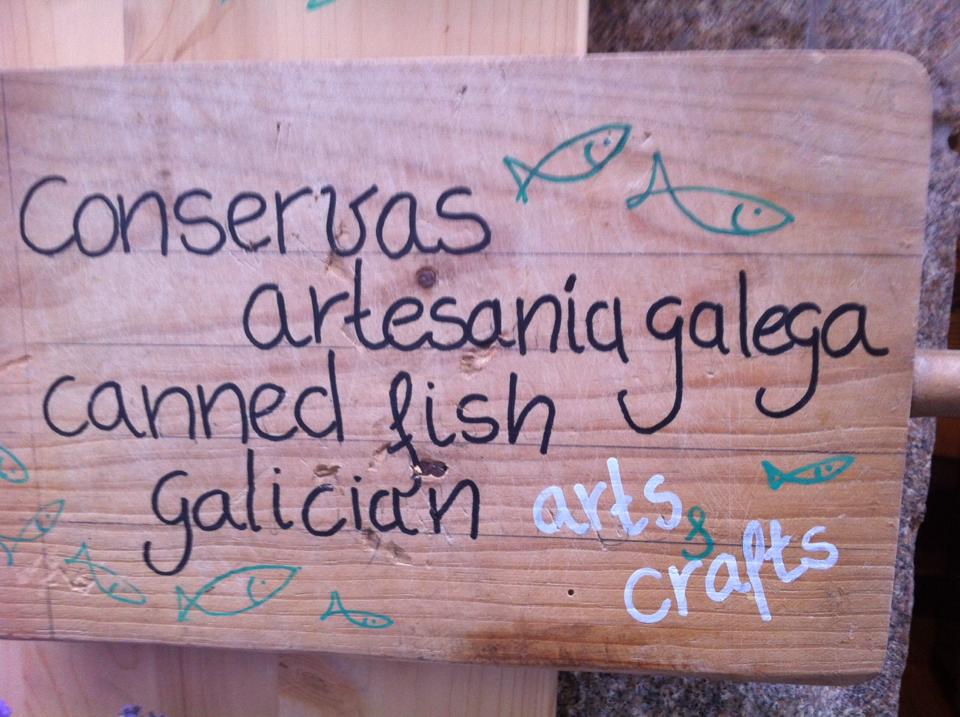 Conservas
artesania galega
canned fish
galician arts &
crafts